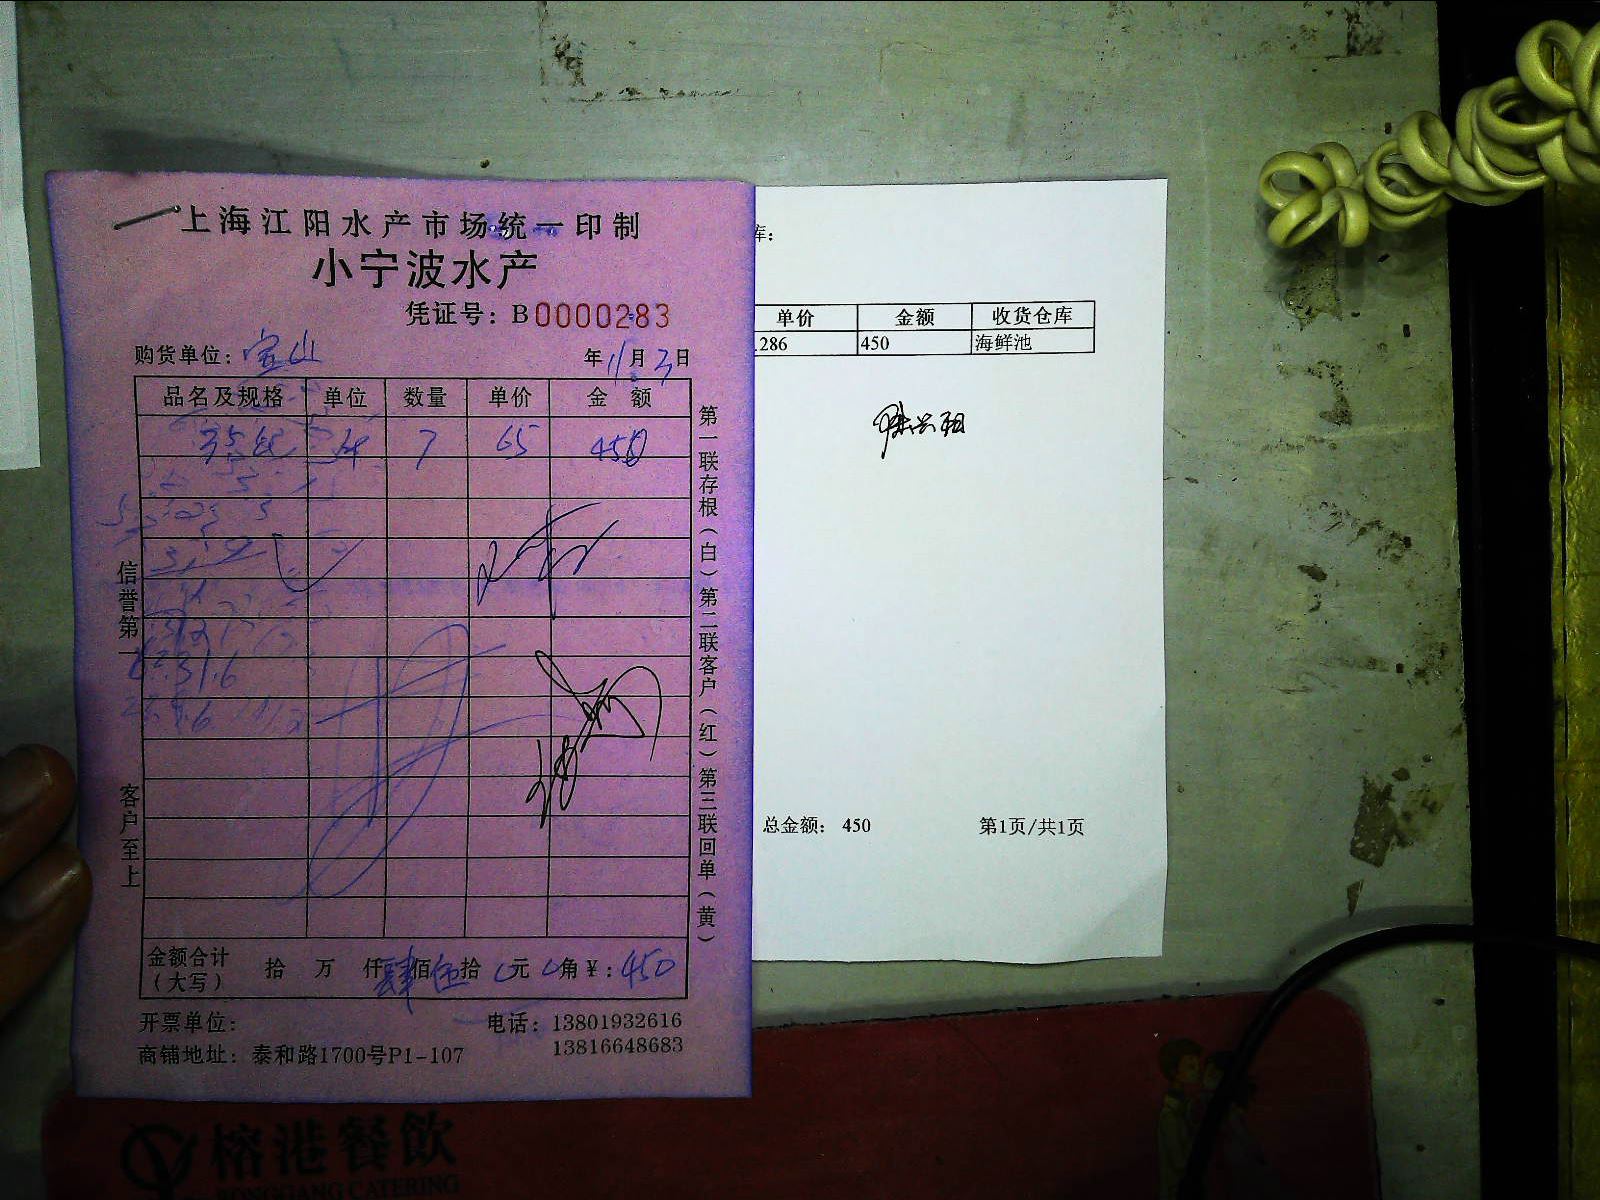 上海江阳水产市场统一印制
小宁波水产
凭证号：B0000283
购货单位：宝山 年11月3日
品名及规格 单位 数量 单价 金额
7 65 450
信誉第一 客户至上
第一联存根（白）第二联客户（红）第三联回单（黄）
金额合计（大写） 拾 万 仟肆佰伍拾0元0角¥：450
开票单位： 电话：13801932616
13816648683
商铺地址：泰和路1700号P1-107
库：
单价 金额 收货仓库
.286 450 海鲜池
总金额： 450 第1页/共1页
榕港餐飲
RONGGANG CATERING